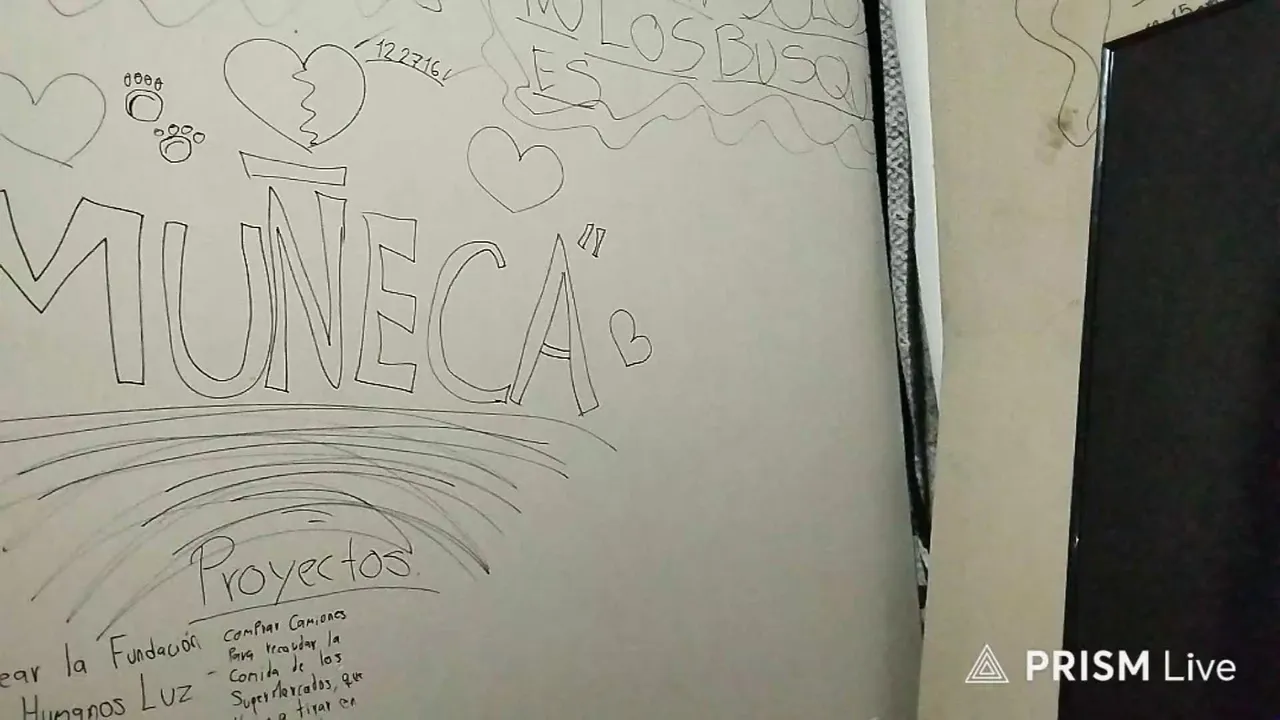 LOS BUSQU
ES
122716
MUÑECA"
Proyectos
ear la Fundación
Humanos Luz
Comprar Camiones
Para recaudar la
- Comida de los
SuperMercados, que
a tirar en
PRISM Live